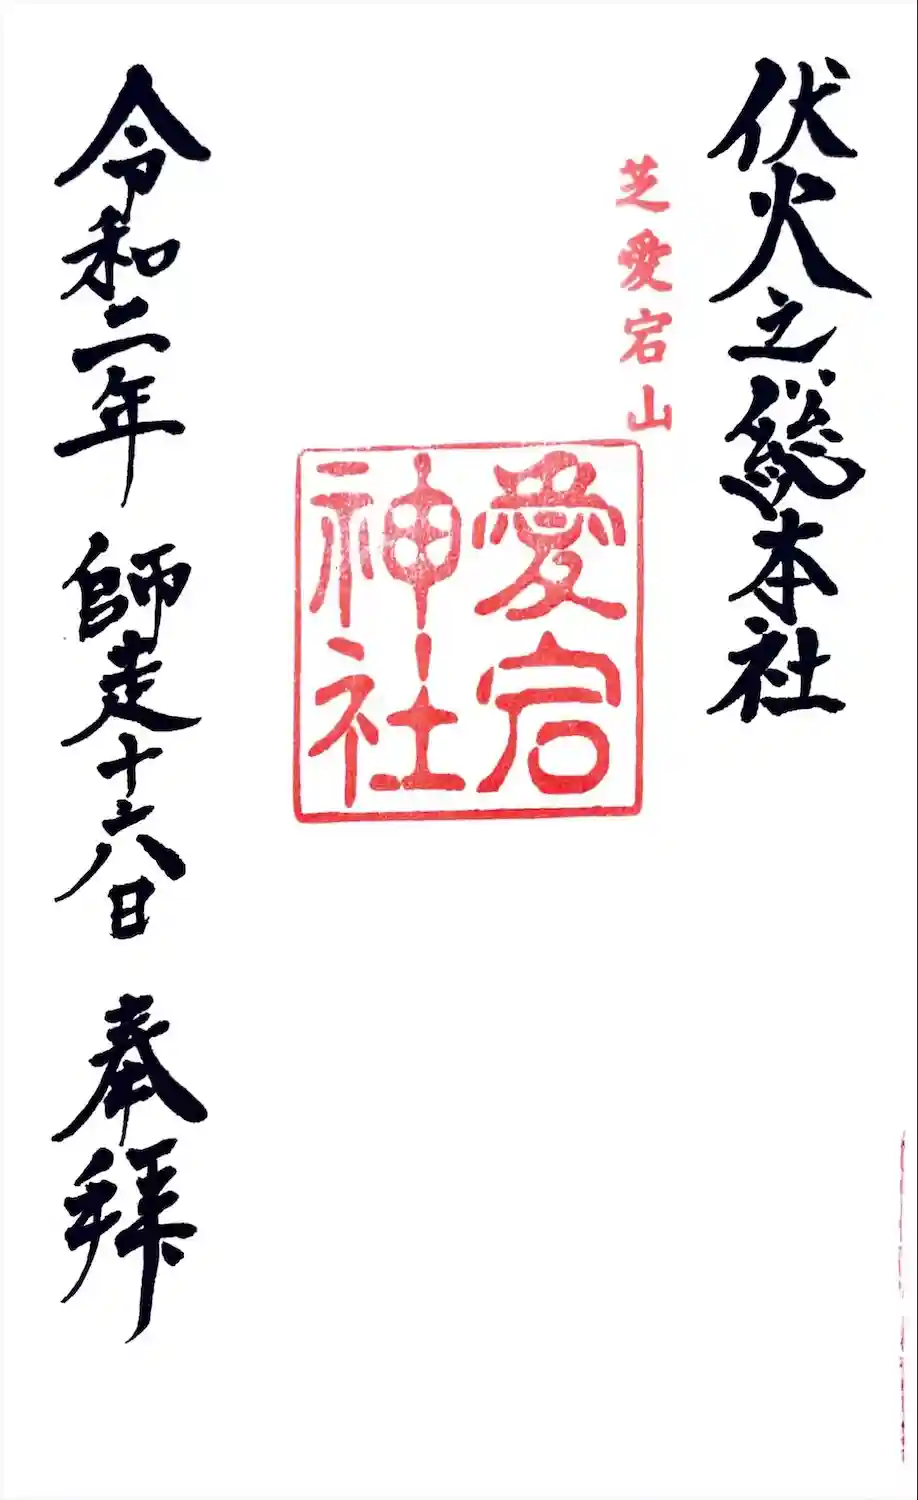 伏火之総本社
芝愛宕山
愛宕
神社
令和二年 師走十六日 奉拜